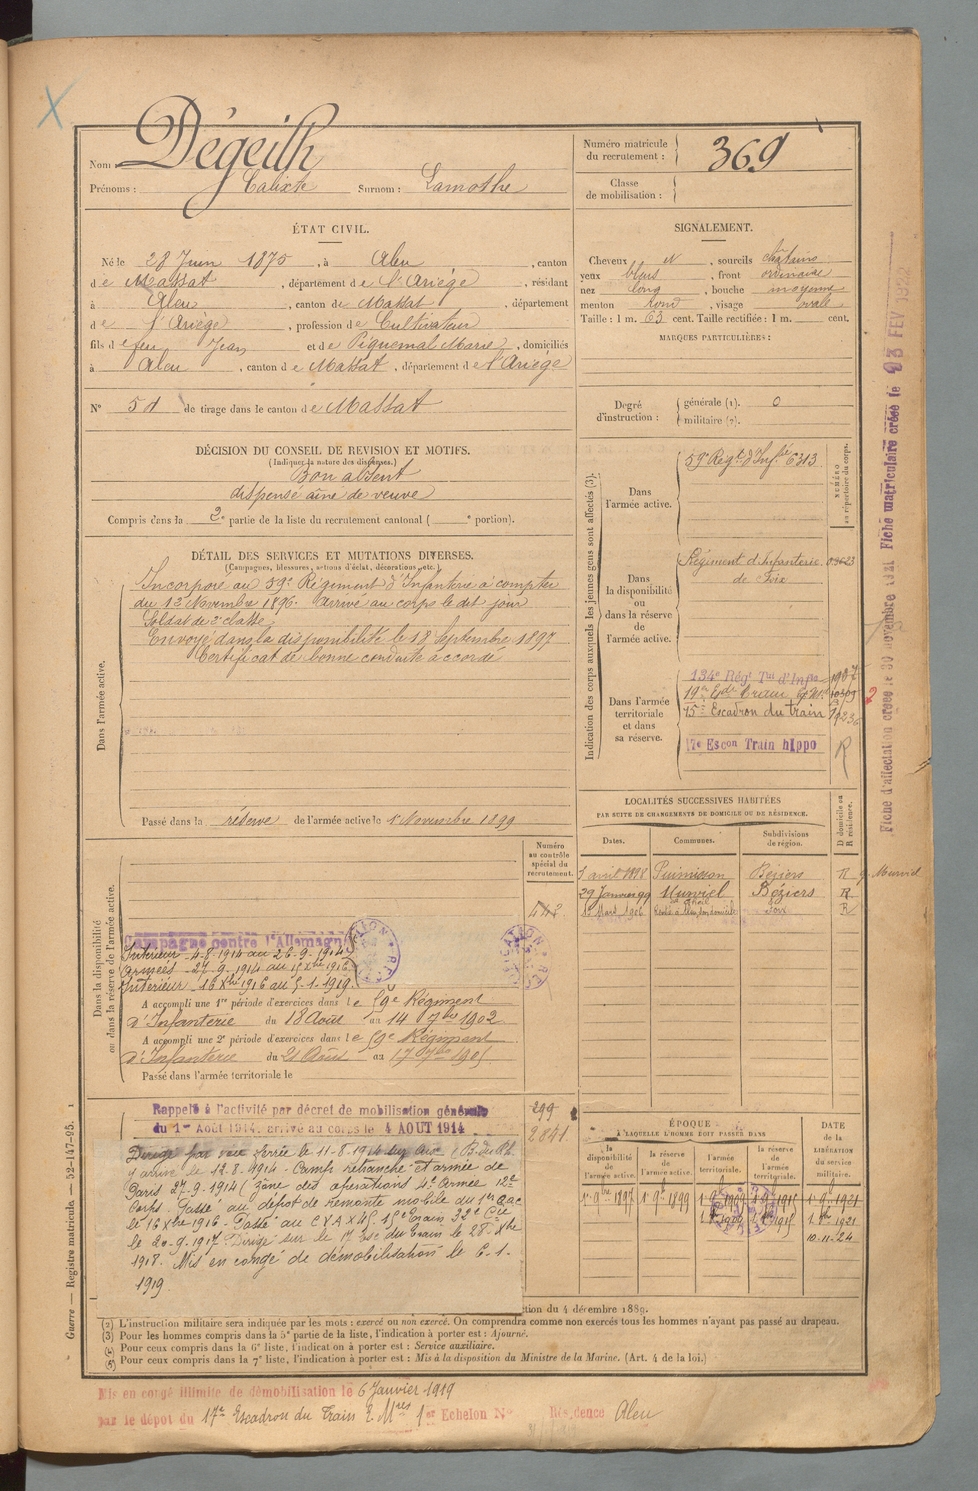 Nom : Dégeilh
Prénoms : Calixte Surnom : Lamothe
Numéro matricule du recrutement : 369
Classe de mobilisation :
ÉTAT CIVIL.
Né le 28 Juin 1875, à Aleu, canton
de Massat, département de l'Ariège, résidant
à Aleu, canton de Massat, département
de l'Ariège, profession de Cultivateur
fils de feu Jean et de Piquemal Marie, domiciliés
à Aleu, canton de Massat, département de l'Ariège
N° 51 de tirage dans le canton de Massat
SIGNALEMENT.
Cheveux et, sourcils châtains
yeux bleus, front ordinaire
nez long, bouche moyenne
menton rond, visage ovale
Taille : 1 m. 63 cent. Taille rectifiée : 1 m. cent.
MARQUES PARTICULIÈRES :
Degré d'instruction : générale (1). 0
militaire (2).
DÉCISION DU CONSEIL DE REVISION ET MOTIFS.
(Indiquer la nature des dispenses.)
Bon absent
dispensé aîné de veuve
Compris dans la 2e partie de la liste du recrutement cantonal ( e portion).
DÉTAIL DES SERVICES ET MUTATIONS DIVERSES.
(Campagnes, blessures, actions d'éclat, décorations, etc.)
Dans l'armée active.
Incorporé au 59e Régiment d'Infanterie à compter
du 12 Novembre 1896. Arrivé au corps le dit jour
Soldat de 2e classe
Envoyé dans la disponibilité le 18 Septembre 1897
Certificat de bonne conduite accordé
Passé dans la réserve de l'armée active le 1 Novembre 1899
Indication des corps auxquels les jeunes gens sont affectés (3).
NUMÉRO au répertoire du corps.
Dans l'armée active.
59e Régt d'Infie 6313
Dans la disponibilité ou dans la réserve de l'armée active.
Régiment d'Infanterie
de Foix
Dans l'armée territoriale et dans sa réserve.
134e Régt Tal d'Infie 1907
15e Escadron du train
17e Escon Train hippo R
LOCALITÉS SUCCESSIVES HABITÉES
PAR SUITE DE CHANGEMENTS DE DOMICILE OU DE RÉSIDENCE.
D domicile ou R résidence.
Dates. Communes. Subdivisions de région.
1 avril 1898 Puimisson Béziers R
29 Janvier 99 Murviel Béziers R
1906 Foix R
Dans la disponibilité ou dans la réserve de l'armée active.
Numéro au contrôle spécial du recrutement.
442
Campagne contre l'Allemagne
Intérieur 4-8-1914 au 26-9-1914
Armées 27-9-1914 au 15 Xbre 1916
Intérieur 16 Xbre 1916 au 5-1-1919
A accompli une 1re période d'exercices dans le 59e Régiment
d'Infanterie du 18 Août au 14 7bre 1902
A accompli une 2e période d'exercices dans le 59e Régiment
d'Infanterie du 21 Août au 17 7bre 1905
Passé dans l'armée territoriale le
Rappelé à l'activité par décret de mobilisation générale
du 1er Août 1914. arrivé au corps le 4 AOUT 1914
299
2841
Dirigé par voie ferrée le 11-8-1914
y arrive le 12-8-1914 - Camp retranché et armée de
Paris 27-9-1914 (zône des opérations 4e Armée 12e
Corps. Passé au dépôt de remonte mobile du 1er
le 16 Xbre 1916 - Passé au C V A X 45, 15e Train 32e Cie
le 20-9-1917. Dirigé sur le 17 Esc du Train le 28 Xbre
1918. Mis en congé de démobilisation le 6-1-
1919.
ÉPOQUE
À LAQUELLE L'HOMME DOIT PASSER DANS
la disponibilité de l'armée active.
la réserve de l'armée active.
l'armée territoriale.
la réserve de l'armée territoriale.
DATE de la LIBÉRATION du service militaire.
1er 9bre 1897 1er 9bre 1899 1er 9bre 1909 1er 9bre 1915 1er 9bre 1921
10-11-24
ction du 4 décembre 1889.
(2) L'instruction militaire sera indiquée par les mots : exercé ou non exercé. On comprendra comme non exercés tous les hommes n'ayant pas passé au drapeau.
(3) Pour les hommes compris dans la 5e partie de la liste, l'indication à porter est : Ajourné.
(4) Pour ceux compris dans la 6e liste, l'indication à porter est : Service auxiliaire.
(5) Pour ceux compris dans la 7e liste, l'indication à porter est : Mis à la disposition du Ministre de la Marine. (Art. 4 de la loi.)
Mis en congé illimité de démobilisation le 6 Janvier 1919
par le dépôt du 17e Escadron du Train 1er Echelon N° Résidence Aleu
Guerre — Registre matricule — 52-147-95.
Fiche d'affectation créée le 30 novembre 1921 Fiche matriculaire créée le